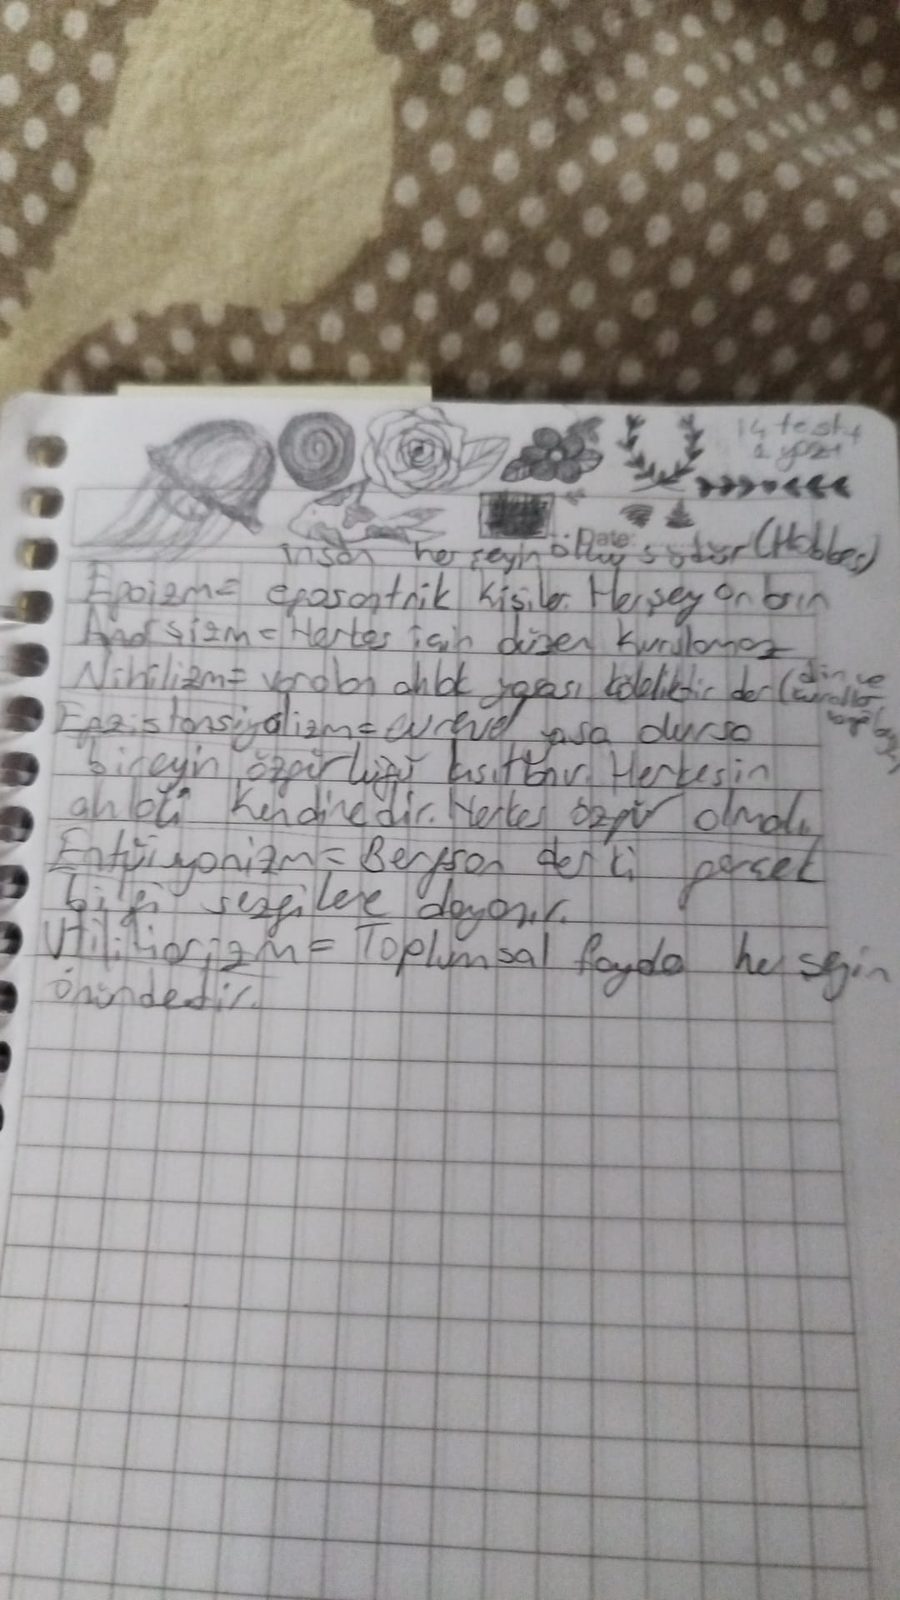 14 test +
Date:
insan herşeyin ölçüsüdür (Hobbes)
Egoizm = egosantrik kişiler. Herşey onların
Anarşizm = Herkes için düzen kurulamaz
Nihilizm = yaratan ahlak yasası köleliktir der (din ve
kurallar
Egzistansiyalizm = evrensel yasa olursa
bireyin özgürlüğü kısıtlanır. Herkesin
ahlakı kendinedir. Herkes özgür olmalı
Entüisyonizm = Bergson der ki gerçek
bilgi sezgilere dayanır.
Utilitiarizm = Toplumsal fayda herşeyin
önündedir.